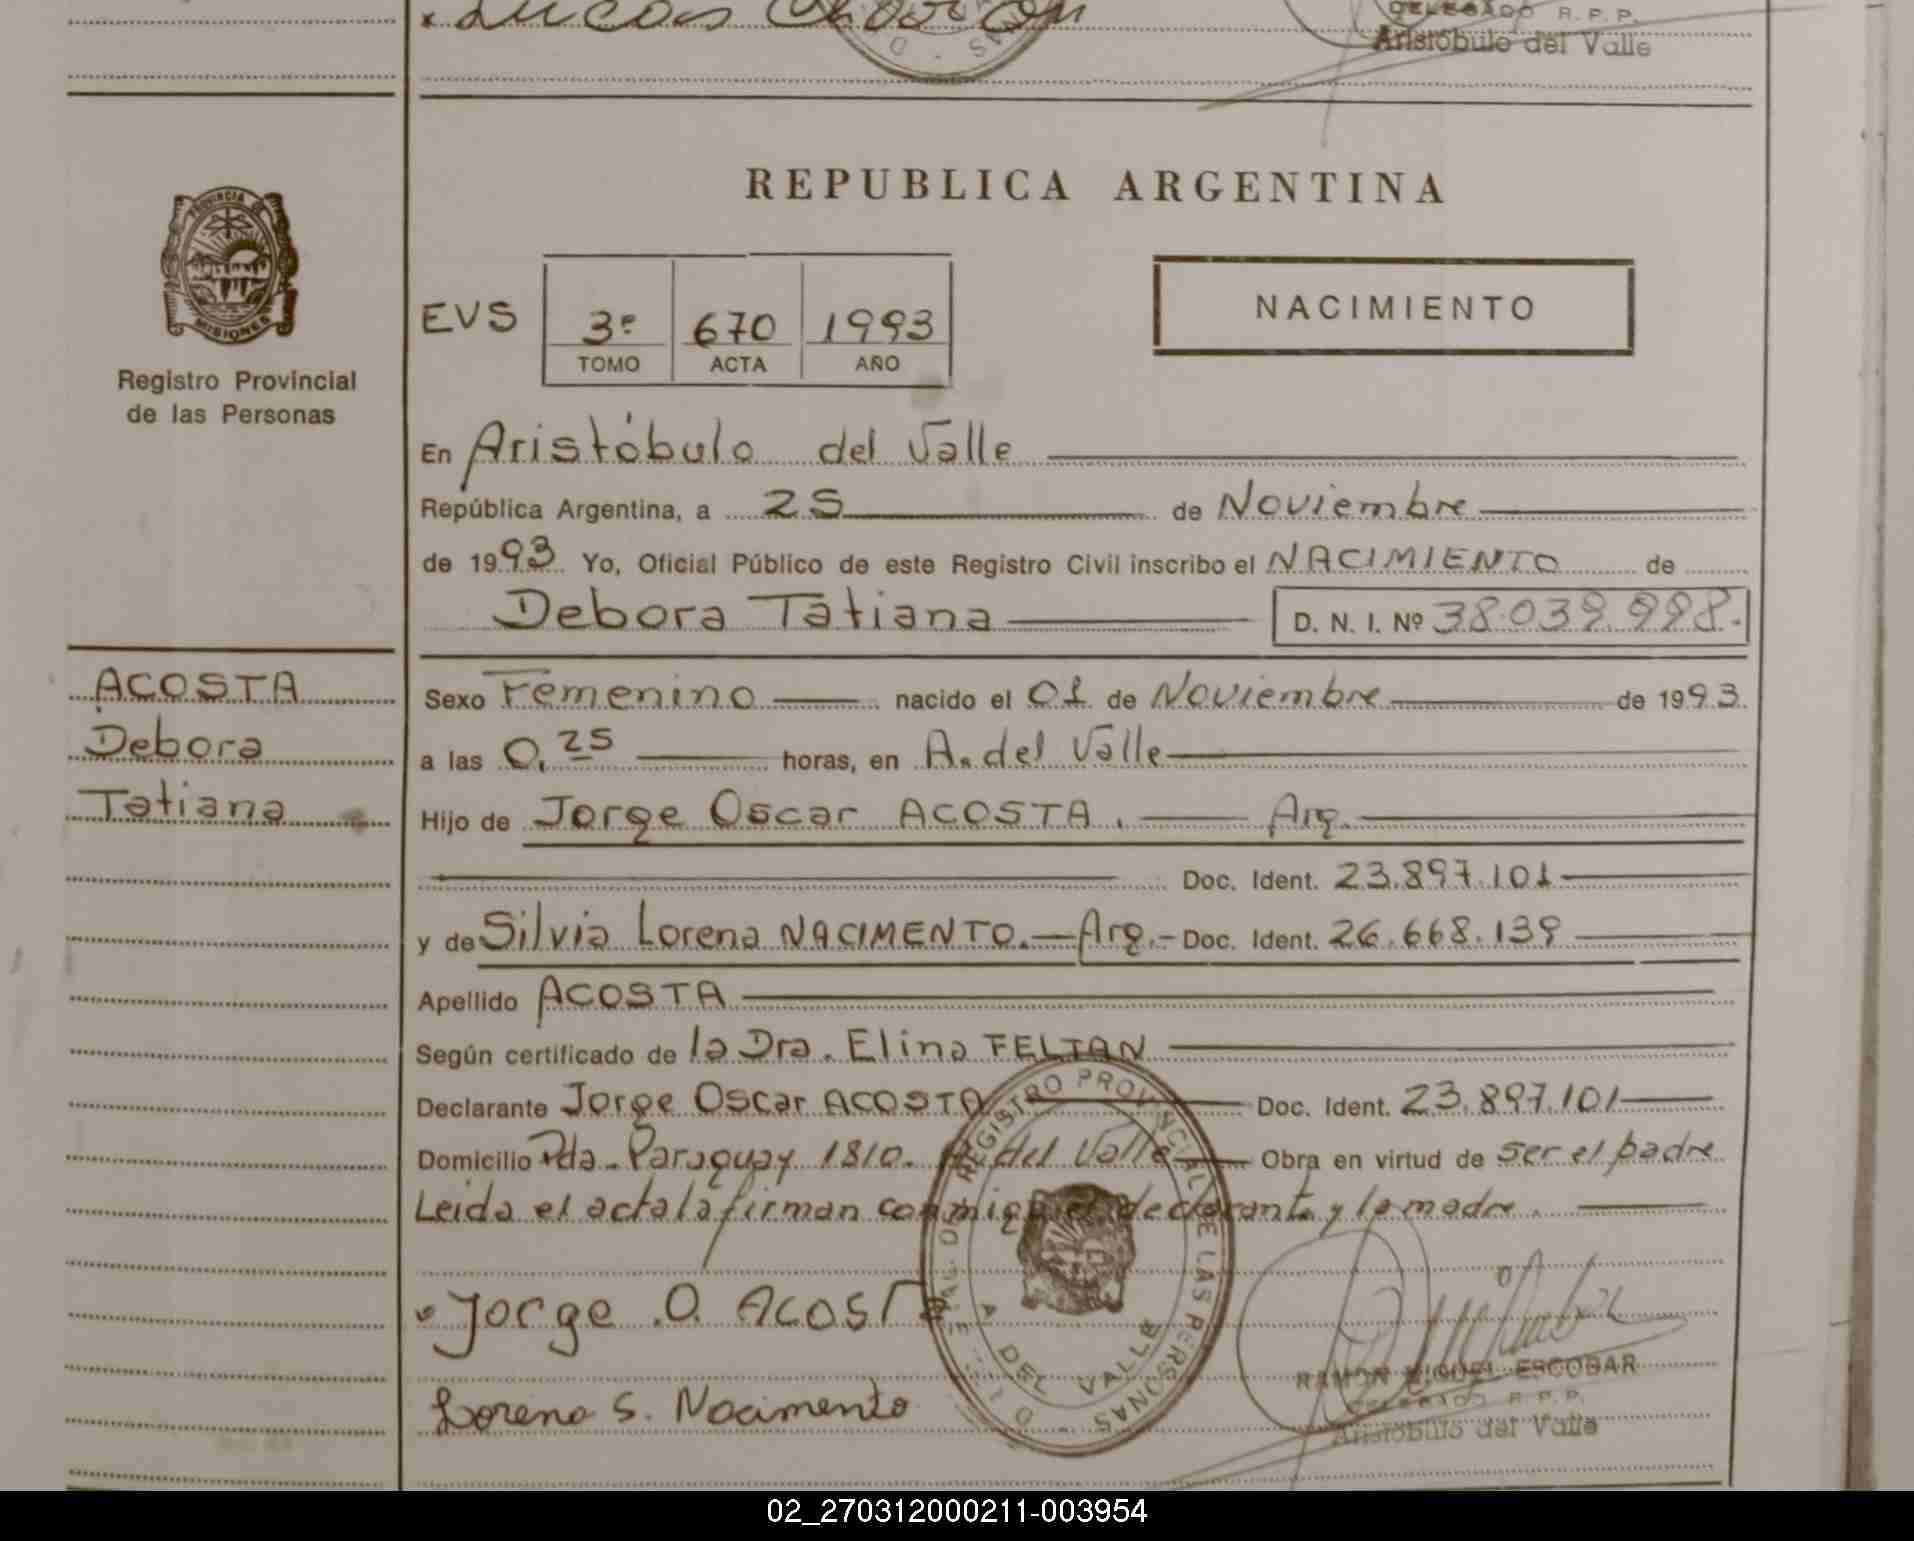 Lucas
DELEGADO R. P. P.
Aristóbulo del Valle
PROVINCIA DE
MISIONES
Registro Provincial
de las Personas
REPUBLICA ARGENTINA
EVS
3º 670 1993
TOMO ACTA AÑO
NACIMIENTO
En Aristóbulo del Valle
República Argentina, a 25 de Noviembre
de 1993 Yo, Oficial Público de este Registro Civil inscribo el NACIMIENTO de
Debora Tatiana D. N. I. Nº 38.039.998.
ACOSTA
Debora
Tatiana
Sexo Femenino nacido el 01 de Noviembre de 1993.
a las 0,25 horas, en A. del Valle
Hijo de Jorge Oscar ACOSTA. Arg.
Doc. Ident. 23.897.101
y de Silvia Lorena NACIMENTO. Arg. Doc. Ident. 26.668.139
Apellido ACOSTA
Según certificado de la Dra. Elina FELTAN
Declarante Jorge Oscar ACOSTA Doc. Ident. 23.897.101
Domicilio Pda. Paraguay 1810. A. del Valle Obra en virtud de ser el padre
Leida el acta la firman conmigo el declarante y la madre.
Jorge O. ACOSTA
REGISTRO PROVINCIAL DE LAS PERSONAS
A DEL VALLE
Lorena S. Nacimento
RAMON MIGUEL ESCOBAR
DELEGADO R. P. P.
Aristóbulo del Valle
02_270312000211-003954